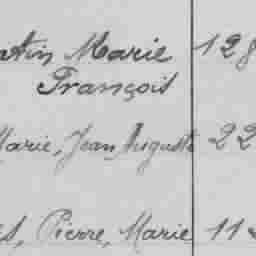 Marie 128
François
Marie, Jean Auguste 22
Pierre, Marie 112